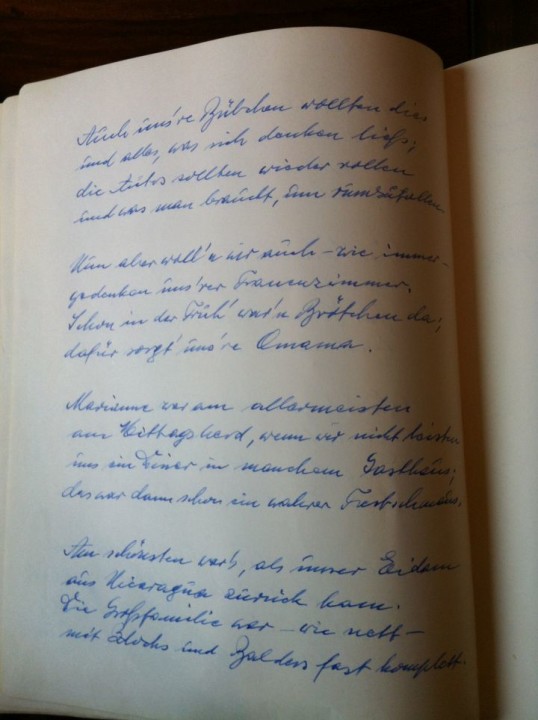 Auch uns're Bübchen wollten dies
und alles, was sich denken liess;
die Autos sollten wieder rollen
und was man braucht, um rumzutollen.
Nun aber woll'n wir auch – wie immer –
gedenken uns'rer Frauenzimmer.
Schon in der Früh' war'n Brötchen da;
dafür sorgt' uns're Omama.
Marianne war am allermeisten
am Mittagsherd, wenn wir nicht leisten
uns ein Diner in manchem Gasthaus;
das war dann schon ein wahrer Festschmaus.
Am schönsten war's, als unser Eidam
aus Nicaragua zurück kam.
Die Großfamilie war – wie nett –
mit und fast komplett.